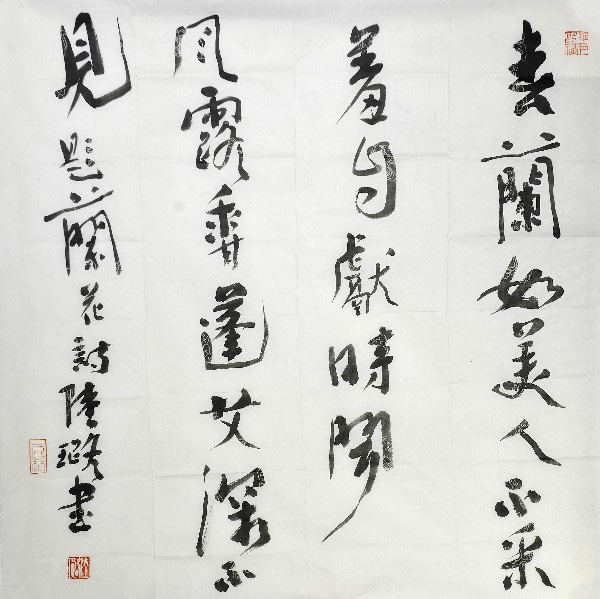 春蘭如美人不采
羞自獻時聞
風露香蓬艾深不
見題蘭花詩陸璐書